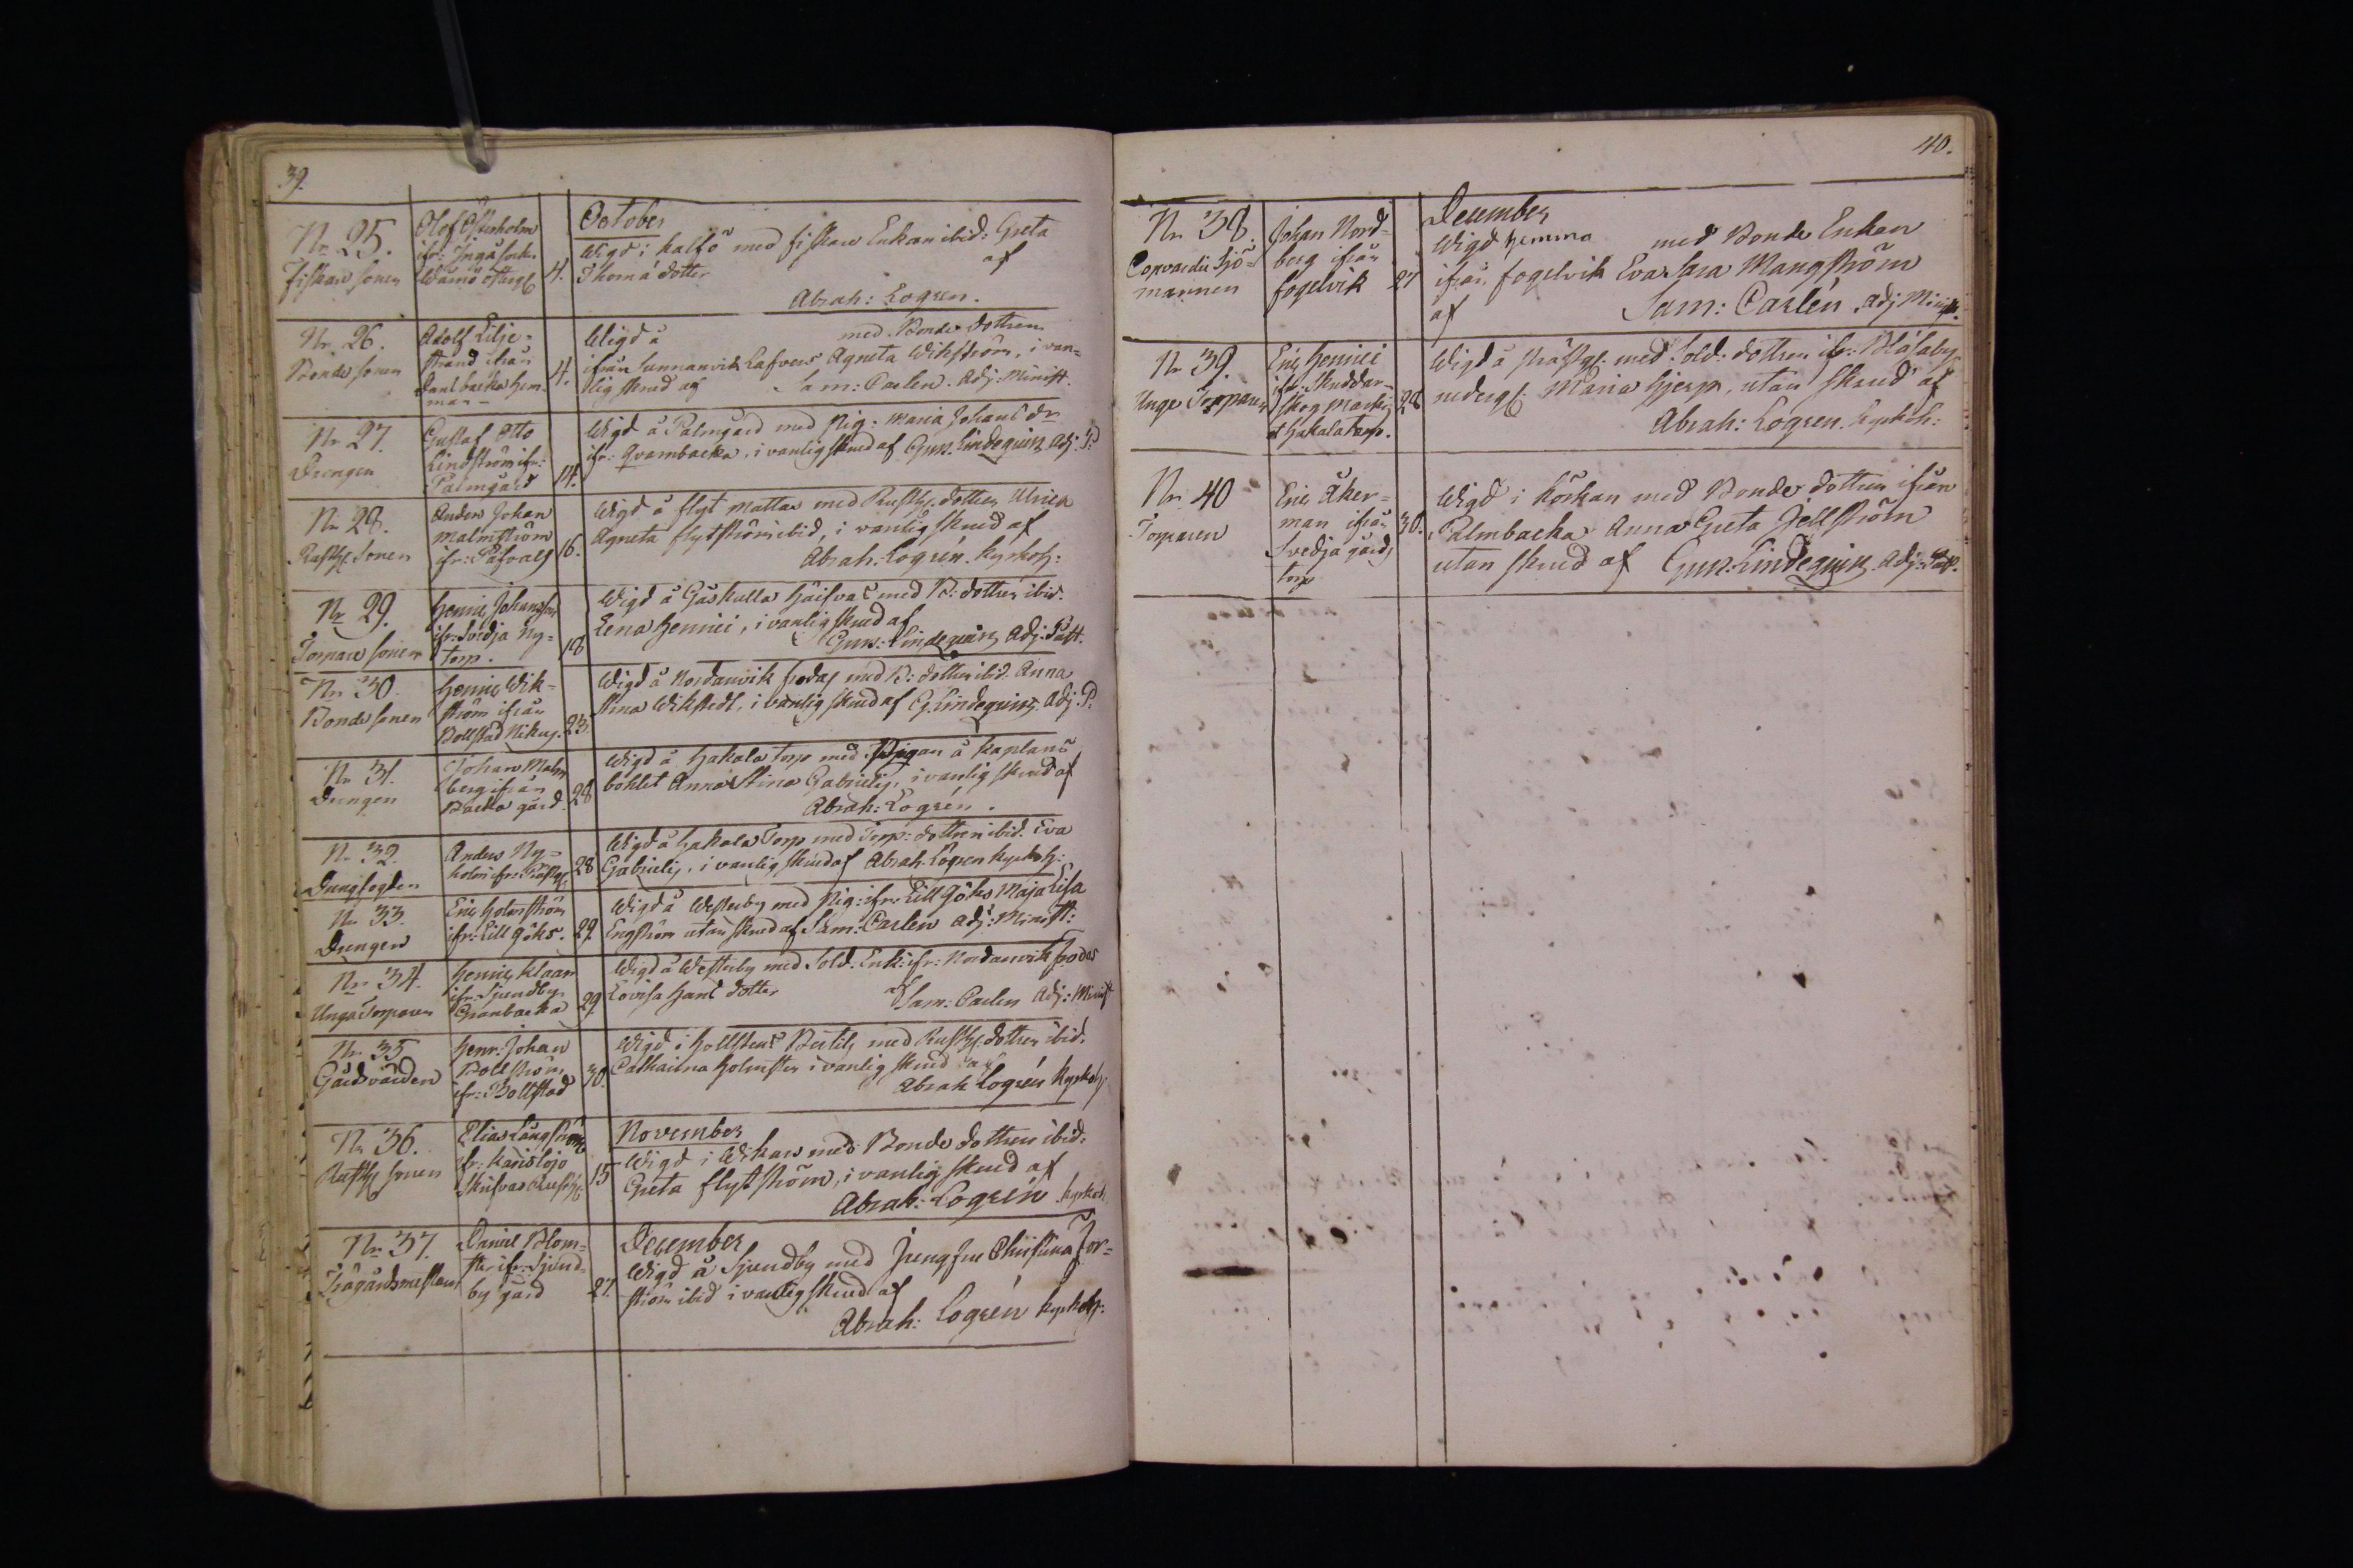 39.
Nr 25.
Fiskare sonen
Olof Österholm
ifr: Ingå socken
Wämö
4.
October
Wigd i Kalfö med fiskare Enkan ibid: Greta
Thoma dotter af
Abrah: Logren.
Nr 26.
Bonde sonen
Adolf Lilje=
strand ifrån
Dansbacka Hem=
man
4.
Wigd å med Bonde dottren
ifrån Sunnanvik Lafvers Agneta Wikström, i van=
lig skrud af Sam: Carlen. Adj: Minist.
Nr 27.
Drengen
Gustaf Otto
Lindström ifr:
Palmgård
14.
Wigd å Palmgård med Pig: Maria Johans dr
ifr: Qvarnbacka, i vanlig skrud af Gust. Lindequist Adj: P:
Nr 28.
Rusth: Sonen
Anders Johan
Malmström
ifr: Påfvals
16.
Wigd å Flyt Mattas med Rusth: dottren Ulrica
Agneta Flytström ibid, i vanlig skrud af
Abrah: Logrén. Kyrkoh:
Nr 29.
Torpare sonen
Henric Johansson
ifr: Svidja Ny=
torp.
18
Wigd å Gåskulla Håifvas med B: dottren ibid:
Lena Henrici, i vanlig skrud af
Gust: Lindequist Adj: Past.
Nr 30.
Bonde sonen
Henric Wik=
ström ifrån
Bollstad Nikus.
23.
Wigd å Nordanvik Frodas med B: dottren ibid. Anna
Stina Wikstedt, i vanlig skrud af G. Lindequist. Adj. P:
Nr 31.
Drengen
Johan Malm
berg ifrån
Backa gård.
28
Wigd å Hakala torp med Pigan å Kaplans
bohlet Anna Stina Gabrielis, i vanlig skrud af
Abrah: Logrén.
Nr 32.
Drengfogden
Anders Ny=
holm ifr: Prästg:
28
Wigd å Hakala Torp med Torp: dottren ibid. Eva
Gabrielis, i vanlig skrud af Abrah: Logren Kyrkoh:
Nr 33.
Drengen
Eric Holmström
ifr: Lill Göks.
29.
Wigd å Westerby med Pig: ifr: Lill Göks Maja Lisa
Engström utan skrud af Sam: Carlen Adj: Minist:
Nr 34.
Unga Torparen
Henric Klaar
ifr: Sjundby
Granbacka
29
Wigd å Westerby med Sold. Enk: ifr: Nordanvik Frodas
Lovisa Hans dotter af Sam: Carlen Adj: Minist
Nr 35
Gårdsvärden
Henr: Johan
Bollström
ifr: Bollstad
30.
Wigd i Hollstens Bertils med Rusth: dottren ibid.
Catharina Holmsten i vanlig skrud af
Abrah Logrén Kyrkoh:
Nr 36.
Rusth: sonen
Elias Långström
ifr: Karislojo
Skrifvars Rusth:
15
November
Wigd i Wikars med Bonde dottren ibid:
Greta Flytström, i vanlig skrud af
Abrah: Logrén Kyrkoh.
Nr 37.
Trägårdsmestaren
Daniel Blom=
ster ifr: Sjund=
by gård
27.
December
Wigd å Sjundby med Jungfru Christina For=
ström ibid i vanlig skrud af
Abrah: Logrén Kyrkoh:
40.
Nr 38.
Copvardie Sjö=
mannen
Johan Nord=
berg ifrån
Fogelvik
27
December
Wigd hemma med Bonde Enkan
ifrån Fogelvik Eva Sara Mangström
af Sam: Carlén. Adj Minist.
Nr 39.
Unge Torparen
Eric Henrici
ifr: Skuddar=
skog
Hakala torp.
28
Wigd å Prästg: med Sold: dottren ifr: Blåsaby
nedergl: Maria Hjerp, utan skrud af
Abrah: Logren. Kyrkoh:
Nr 40
Torparen
Eric Åker=
man ifrån
Svidja gårds
torp
30.
Wigd i Körkan med Bonde dottren ifrån
Palmbacka Anna Greta Jellström
utan skrud af Gust: Lindequist. Adj: Past.